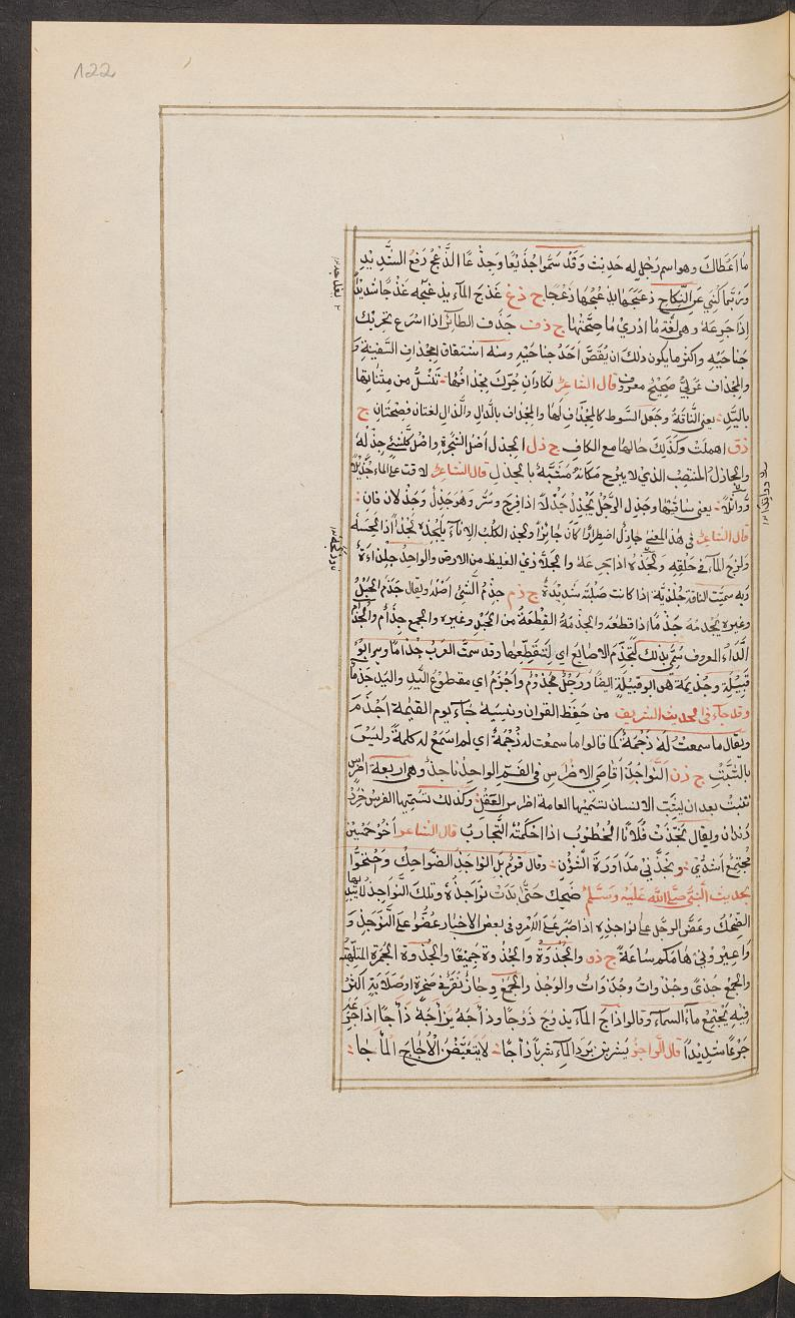 122
ما اعطاك وهو اسم رجل له حديث وقد سَمّوا جُذَيْعًا وجِذْعًا الذَعْجُ رفع الشديد
وربما كُنِي عن النكاح ذعجها يذعجها ذعجا ج ذ غ غذج الماء يغذجه غذجا شديدًا
اذا جرعه وهى لغة ما ادرى ما صحتها ج ذ ف جذف الطائر اذا اسرع تحريك
جناحيه واكثر ما يكون ذلك ان يُقصّ احد جناحيه ومنه اشتقاق مجذاف السفينة
والمجذاف عربىٌ صحيحٌ معروف قال الشاعر تكاد ان حُرّك مجذافها تنسلُّ من مثناتها
باليد يعنى الناقة وجعل السوط كالمجذاف لها والمجداف بالدال والذال لغتان فصيحتان ج
ذ ق اهملت وكذلك حالها مع الكاف ج ذ ل الجذل اصل الشجرة واصل كل شئ جِذله
والجاذل المنتصب الذى لا يبرح مكانه شُبّه بالجذل قال الشاعر لاقت على الماء جُذيلًا
واتلا يعنى ساقيها وجذل الرجل يجذل جذلا اذا فرح وسُرّ وهو جذل وجذلان فان
قال الشاعر فى هذا المعنى جاذل اضطرارًا كان جائزًا ولجذ الكلب الاناء يلجذه لجذًا اذا لحسه
ولزج الماء فى حلقه اذا جرعه والجلاذى الغليظ من الارض والواحد جلذاءة
وبه سميت الناقة جُلذيّة اذا كانت صلبة شديدةً ج ذ م جِذمُ الشئ اصله ويقال جذم الحبل
وغيره يجذمه جذما اذا قطعه والجذمة القطعة من الحبل وغيره والجمع جذام والجذام
الدّاء المعروف سُمّى بذلك لتجذّم الاصابع اى لتقطعها وقد سمّت العرب جذاما وهو ابو
قبيلة وجُذيمة هى ابو قبيلة ايضا ورجل مجذوم واجذم اى مقطوع اليد واليد جذما
وقد جاء فى الحديث الشريف من حفظ القران ونسيه جاء يوم القيمة اجذم
ويقال ما سمعت له زجمة كما قالوا ما سمعت له ذجمةً اى لم اسمع له كلمة وليس
بالثبت ج ذ ن النواجذ اقاصى الاضراس فى الفم الواحد ناجذ وهى اربعة اضراس
تنبت بعد ان يشب الانسان تسميها العامة اضراس العقل وكذلك تسميها الفرس خرد
دندان ويقال نجّذت فلانًا الخطوب اذا احكمته التجارب قال الشاعر اخو خمسين
مجتمع اشُدّى ونجّذنى مداورة الشؤن وقال قوم بل النواجذ الضواحك واحتجّوا
بحديث النبى صلى الله عليه وسلم ضحك حتى بدت نواجذه وتلك النواجذ
الضحك وعضّ الرجل على نواجذه اذا صبر على الامر وفى بعض الاخبار عضّوا على النوجذ و
واعيرونى هامكم ساعة ج ذ و والجَذوةُ والجُذوة والجِذوة جميعا الجمرة الملتهبة
والجمع جُذًى وجذوات وجُذوات والوجذ والجمع وجاذ نقر فى صخرة او صلابة اكثر
فيه يجتمع ماء السماء وقالوا ذاج الماء يذوج ذوجا وذاجه يذأجه ذأجا اذا جرعه
جرعا شديدًا قال الراجز يشربن برد الماء شربًا ذأجا لا يتعيّفن الاجاج المأجا